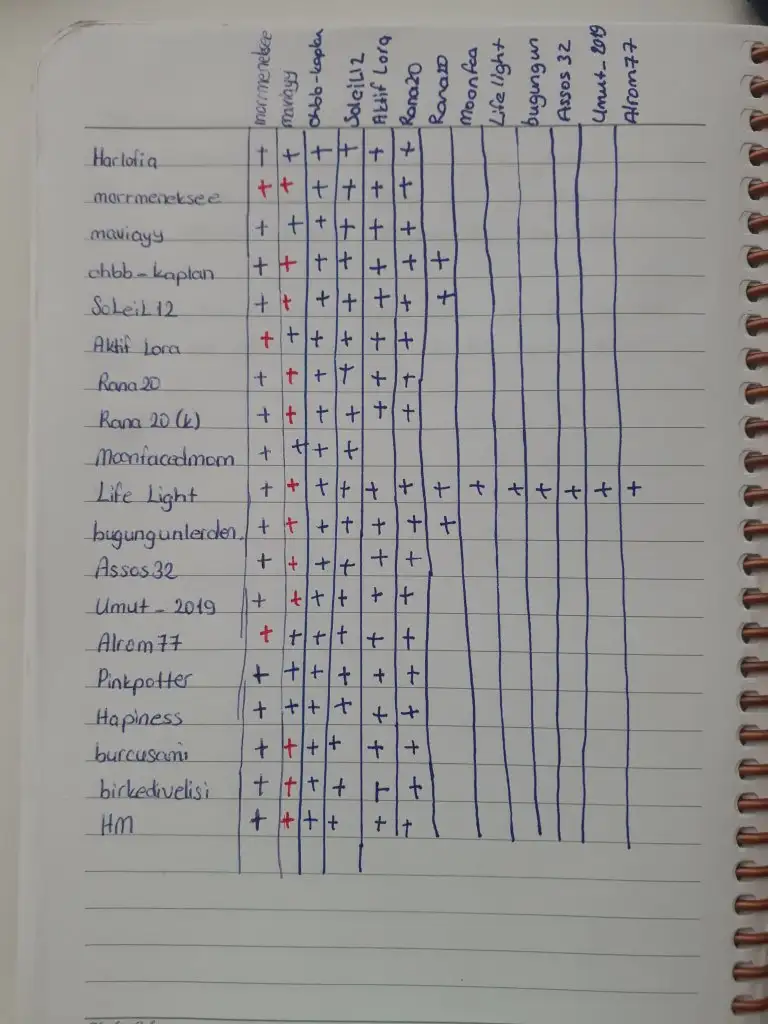 morrmeneksee maviayy ohbb-kaplan SoleiL12 Aktif Lora Rana20 Rana20 Moonfea Life light bugungun Assos 32 Umut-2019 Alrom77
Harlofia + + + + + +
morrmeneksee + + + + + +
maviayy + + + + + +
ohbb-kaplan + + + + + + +
SoLeiL12 + + + + + + +
Aktif Lora + + + + + +
Rana20 + + + + + +
Rana 20 (k) + + + + + +
Moonfacedmom + + + +
Life Light + + + + + + + + + + + + +
bugungunlerden. + + + + + + +
Assos32 + + + + + +
Umut-2019 + + + + + +
Alrom77 + + + + + +
Pinkpotter + + + + + +
Hapiness + + + + + +
burcusami + + + + + +
birkedivelisi + + + + + +
HM + + + + + +